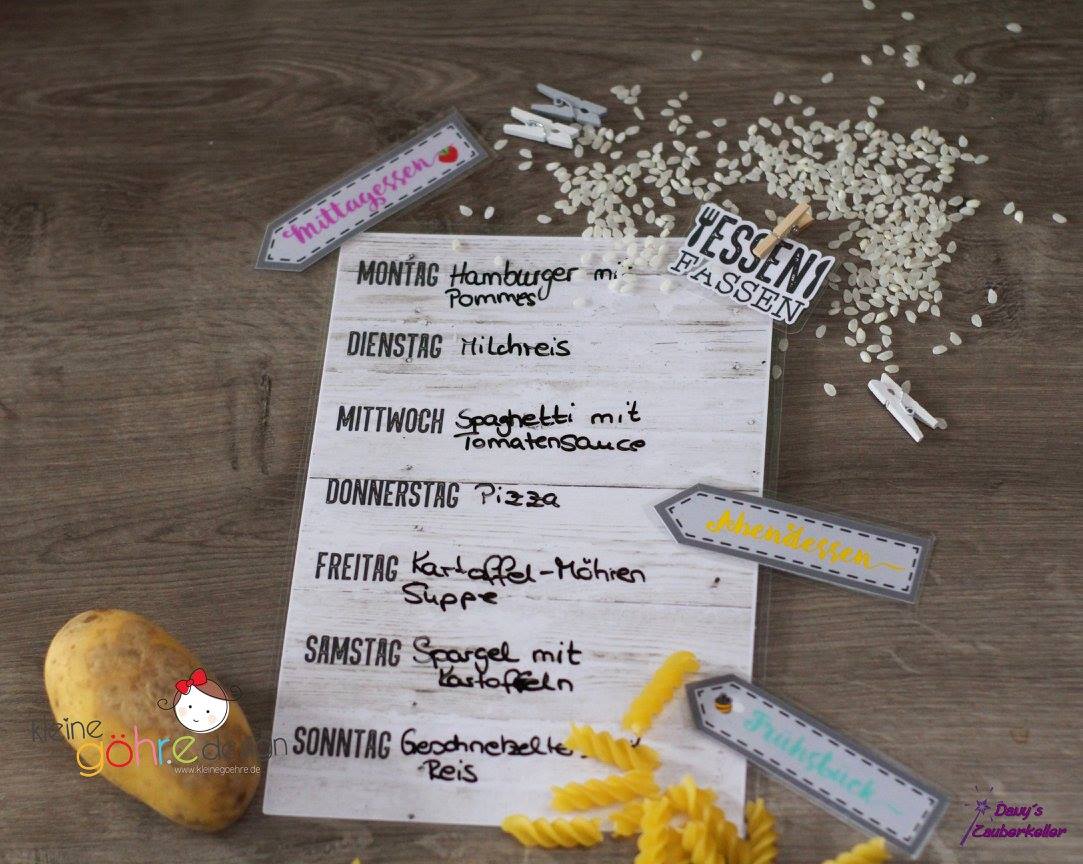 Mittagessen
ESSEN
FASSEN
MONTAG Hamburger mi
Pommes
DIENSTAG Milchreis
MITTWOCH Spaghetti mit
Tomatensauce
DONNERSTAG Pizza
Abendessen
FREITAG Kartoffel-Möhren
Suppe
SAMSTAG Spargel mit
Kartoffeln
Frühstück
SONNTAG Geschnetzelte
Reis
kleine
göhre design
www.kleinegoehre.de
Davy's
Zauberkeller